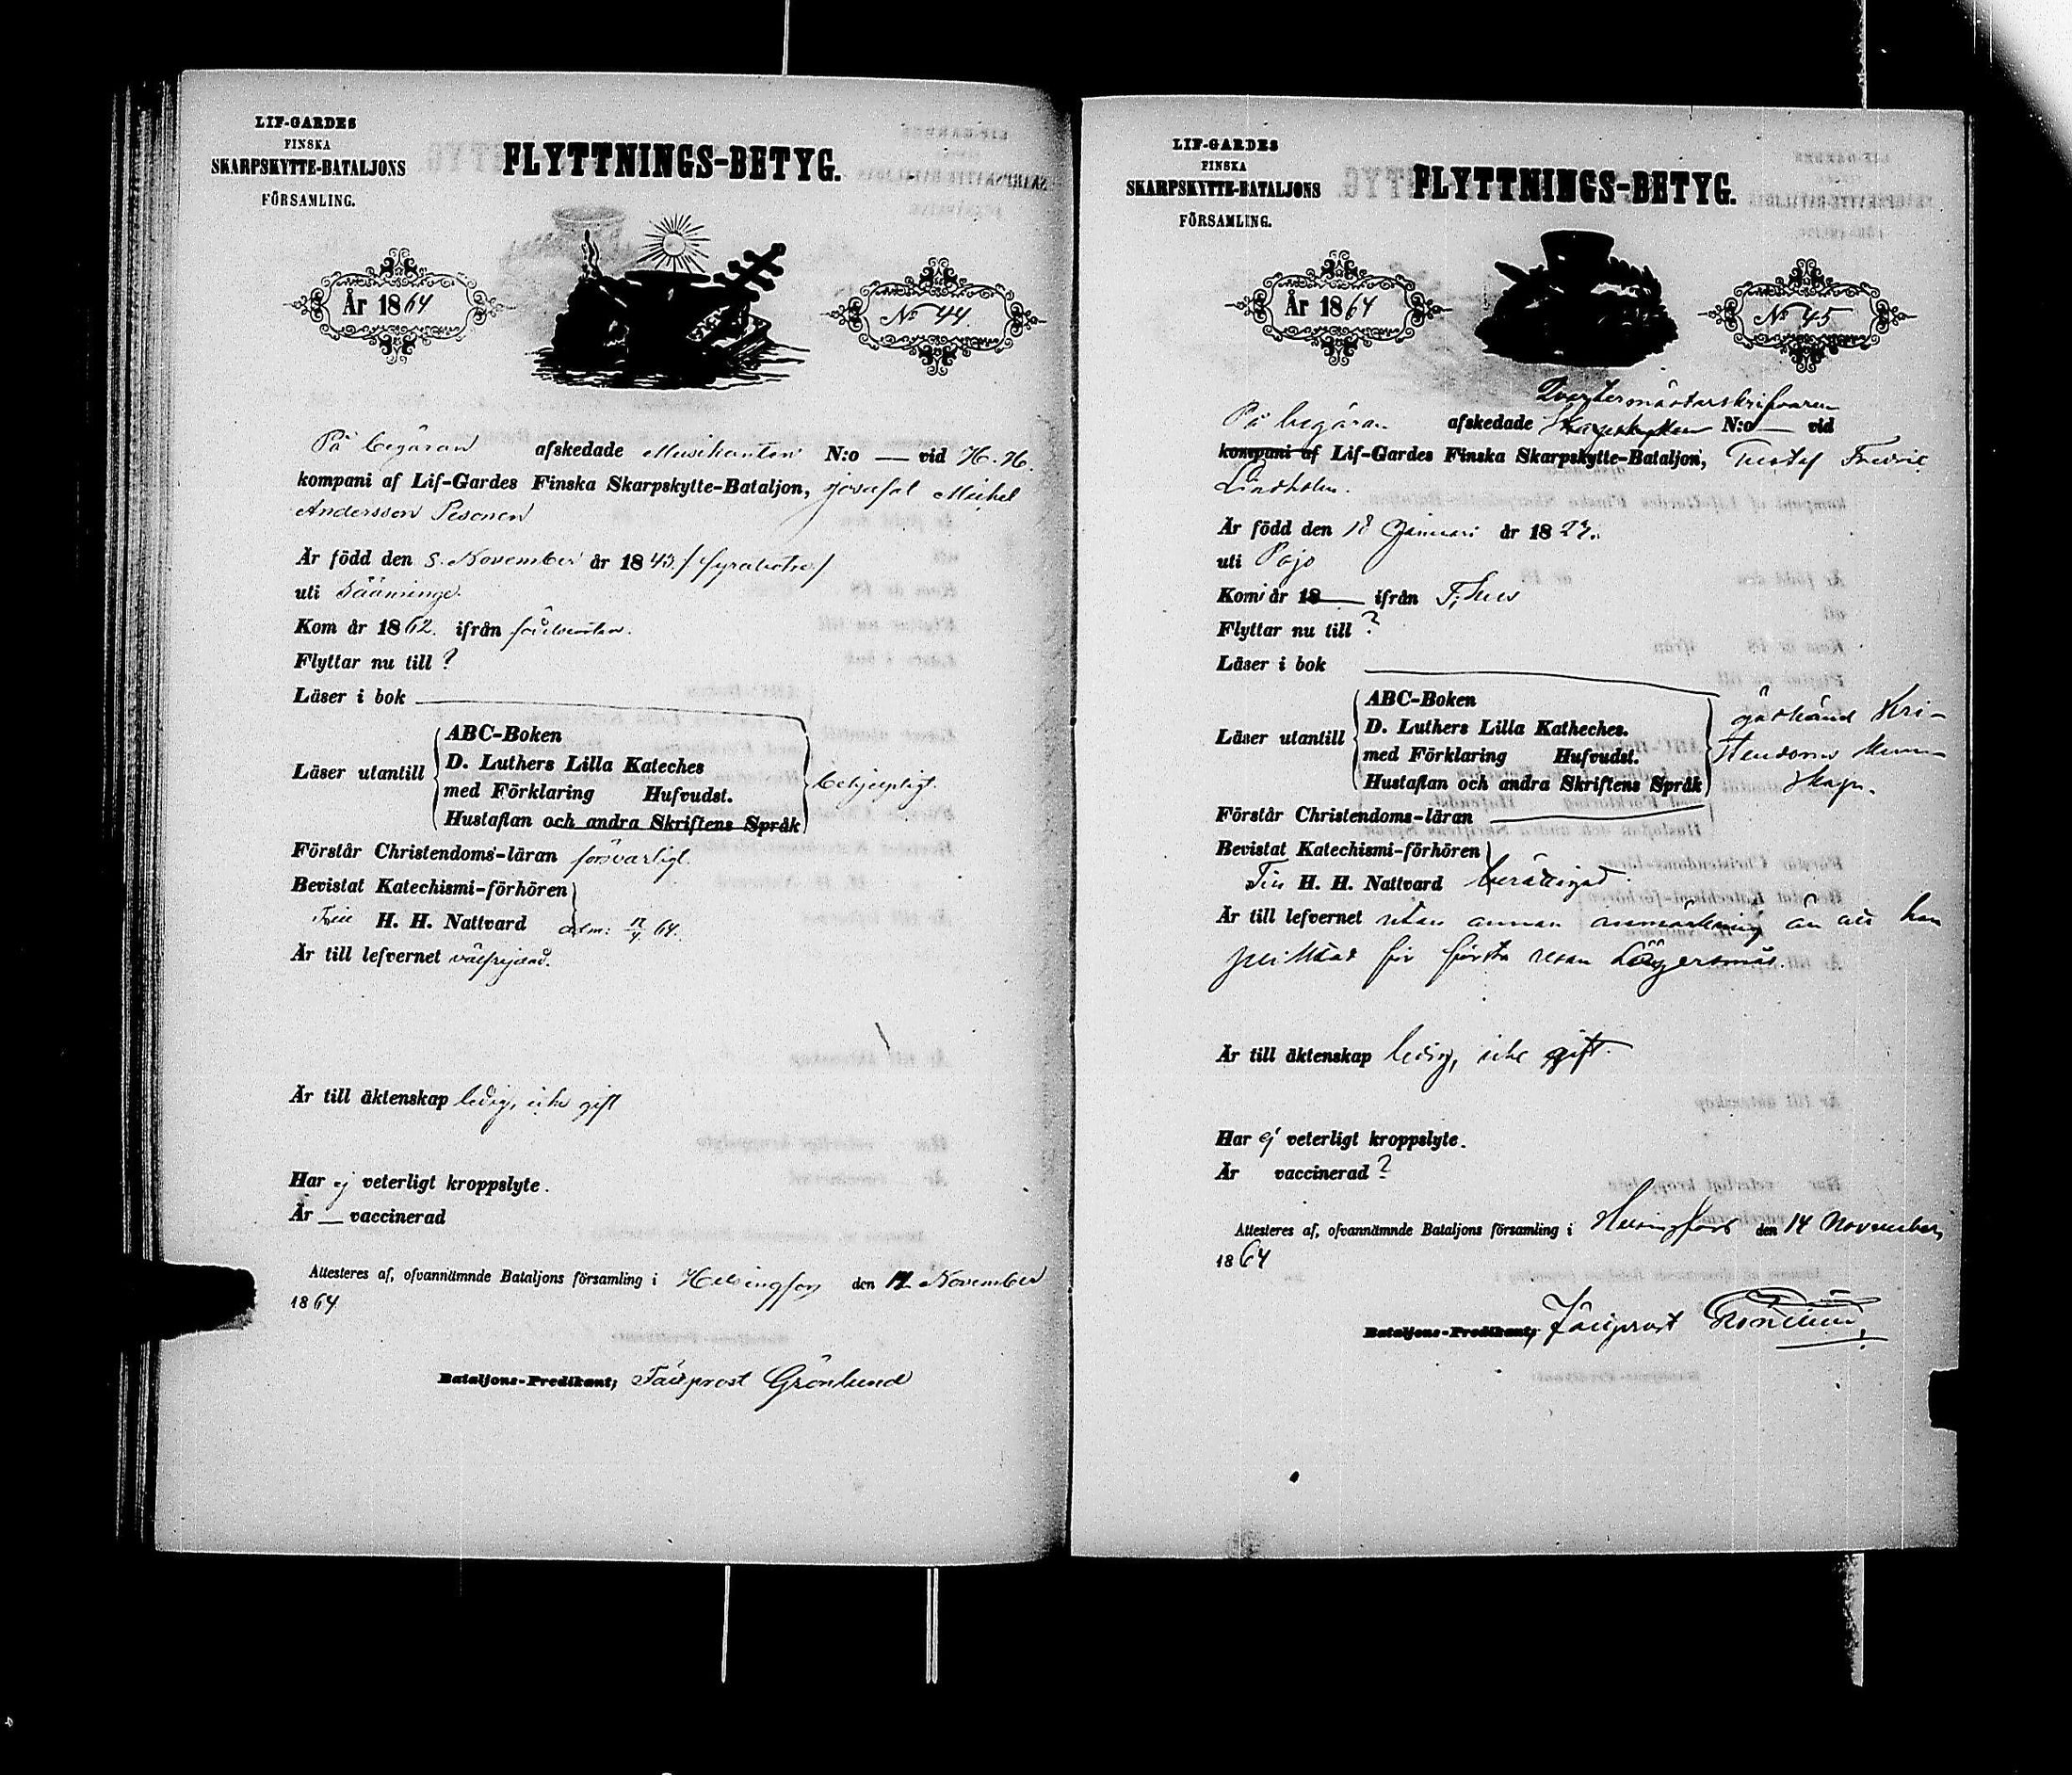 LIF-GARDES
FINSKA
SKARPSKYTTE-BATALJONS
FÖRSAMLING.
FLYTTNINGS-BETYG.
År 1864
No 44.
På begäran afskedade Musikanten N:o — vid H. H.
kompani af Lif-Gardes Finska Skarpskytte-Bataljon, Josafat Michel
Andersson Pesonen
Är född den 8 November år 1843.
uti Sääminge.
Kom år 1862. ifrån
Flyttar nu till ?
Läser i bok
ABC-Boken
Läser utantill D. Luthers Lilla Kateches
med Förklaring Hufvudst.
Hustaflan och andra Skriftens Språk
behjelpligt.
Förstår Christendoms-läran försvarligt.
Bevistat Katechismi-förhören
Till H. H. Nattvard adm: 64.
Är till lefvernet välfrejdad.
Är till äktenskap ledig, icke gift
Har ej veterligt kroppslyte.
Är — vaccinerad
Attesteres af, ofvannämnde Bataljons församling i Helsingfors den 12 November
1864
Bataljons-Predikant, Fältprost Grönlund
LIF-GARDES
FINSKA
SKARPSKYTTE-BATALJONS
FÖRSAMLING.
FLYTTNINGS-BETYG.
År 1864
No 45
Qvartermästarskrifvaren
På begäran afskedade Skarpskytten N:o — vid
kompani af Lif-Gardes Finska Skarpskytte-Bataljon, Gustaf Fredric
Lindholm.
Är född den 18 Januari år 1827.
uti Pojo
Kom år 18— ifrån
Flyttar nu till ?
Läser i bok
ABC-Boken
Läser utantill D. Luthers Lilla Katheches.
med Förklaring Hufvudst.
Hustaflan och andra Skriftens Språk
godkänd Kri-
stendoms kun-
skap.
Förstår Christendoms-läran
Bevistat Katechismi-förhören
Till H. H. Nattvard berättigad.
Är till lefvernet utan annan anmärkning än att han
pliktat för första resan Lägersmål.
Är till äktenskap ledig, icke gift.
Har ej veterligt kroppslyte.
Är vaccinerad ?
Attesteres af, ofvannämnde Bataljons församling i Helsingfors den 14 November
1864
Bataljons-Predikant, Fältprost Grönlund